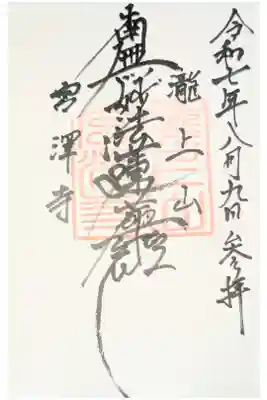 令和七年八月九日 参拝
瀧上山
南無妙法蓮華経
澤寺